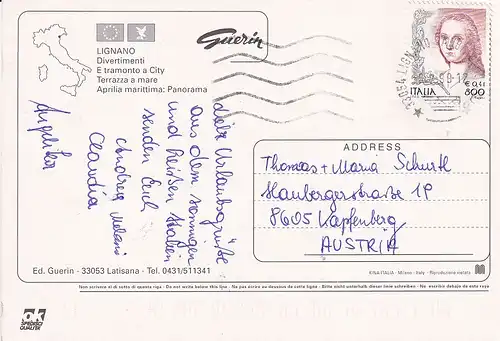 LIGNANO
Divertimenti
E tramonto a City
Terrazza a mare
Aprilia marittima: Panorama
Guerin
ITALIA
€ 0,41
800
liebe Urlaubsgrüße
aus dem sonnigen
und heißen Italien
senden Euch
Andrea, Melani
Claudia
Angelika
ADDRESS
Thomas + Maria Schurtl
Haubergerstraße 19
8605 Kapfenberg
AUSTRIA
Ed. Guerin - 33053 Latisana - Tel. 0431/511341
KINA ITALIA - Milano - Italy - Riproduzione vietata
Non scrivere al di sotto di questa riga - Do not write below this line - Ne pas écrire au dessous de cette ligne - Bitte nicht unterhalb dieser linie schreiben - No escribir debajo de esta raya
OK
SPEDISCI
QUALITÀ